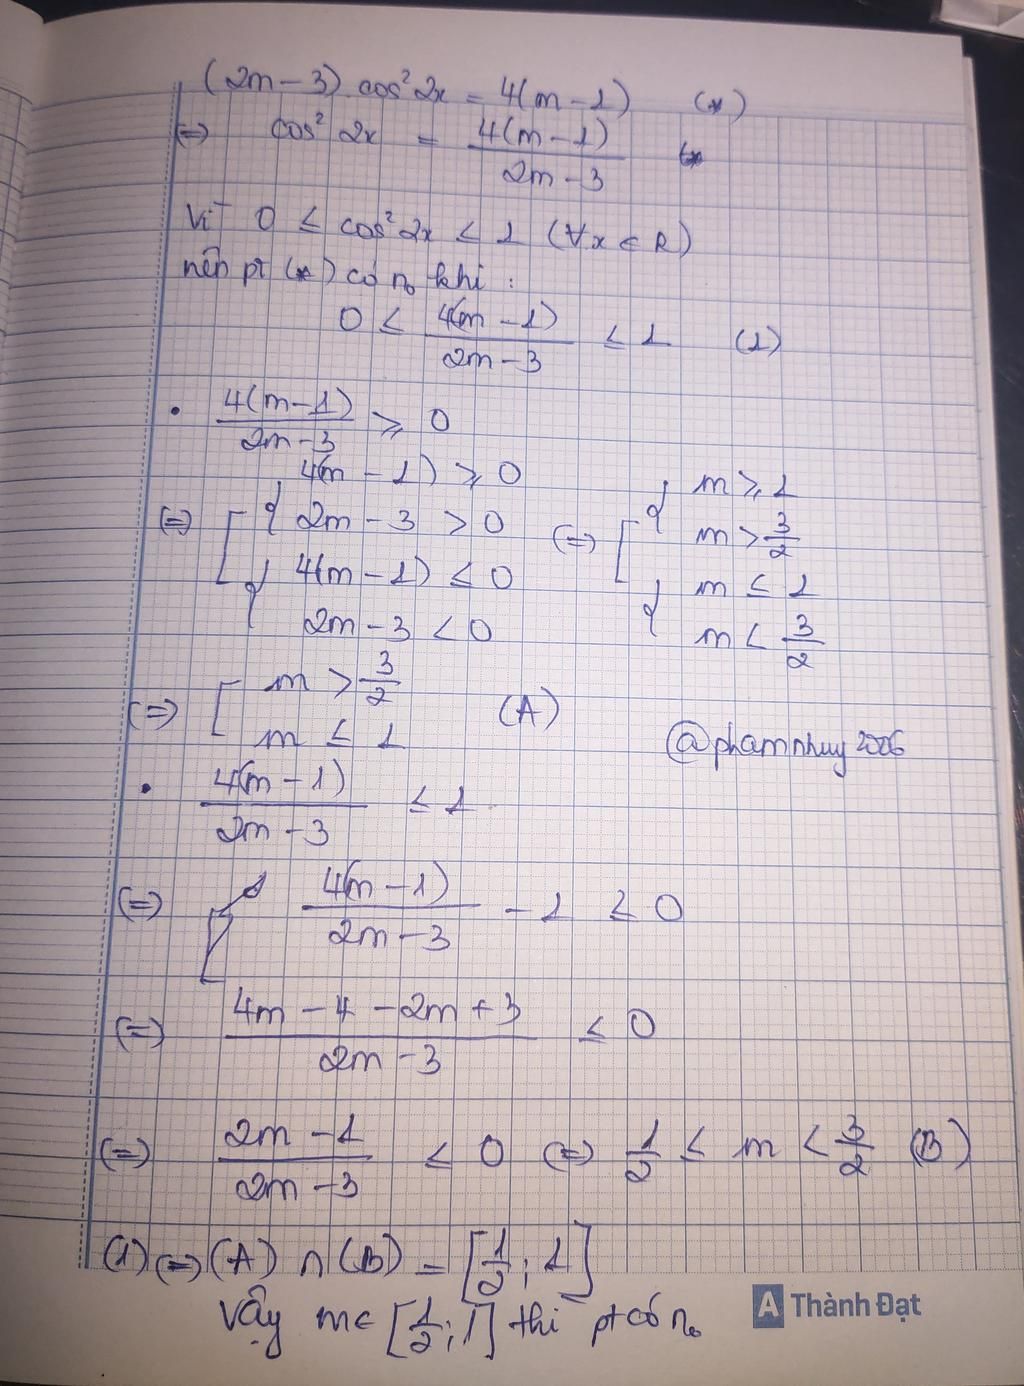 (2m - 3) cos² 2x = 4(m - 1) (*)
(=) cos² 2x = 4(m - 1) / 2m - 3
Vì 0 ≤ cos² 2x ≤ 1 (∀x ∈ R)
nên pt (*) có n₀ khi :
0 ≤ 4(m - 1) / 2m - 3 ≤ 1 (1)
• 4(m - 1) / 2m - 3 ≥ 0
(=) [ { 4(m - 1) ≥ 0 (=) [ { m ≥ 1
2m - 3 > 0 m > 3/2
{ 4(m - 1) ≤ 0 { m ≤ 1
2m - 3 < 0 m < 3/2
(=) [ m > 3/2 (A)
m ≤ 1
@phamnhuy2006
• 4(m - 1) / 2m - 3 ≤ 1
(=) 4(m - 1) / 2m - 3 - 1 ≤ 0
(=) 4m - 4 - 2m + 3 / 2m - 3 ≤ 0
(=) 2m - 1 / 2m - 3 ≤ 0 (=) 1/2 ≤ m < 3/2 (B)
(1) (=) (A) ∩ (B) = [1/2 ; 1]
Vậy m ∈ [1/2 ; 1] thì pt có n₀
A Thành Đạt